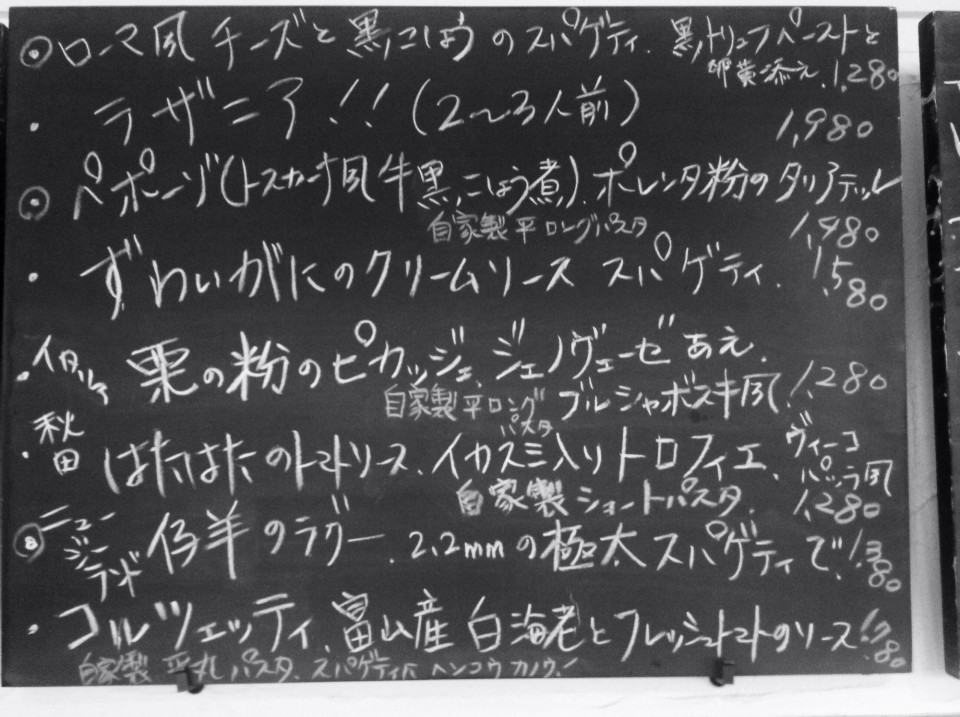 ローマ風チーズと黒こしょうのスパゲティ.黒トリュフペーストと
卵黄添え.1,280
ラザニア!!(2〜3人前)
1,980
ペポーゾ(トスカーナ風牛黒こしょう煮).ポレンタ粉のタリアテッレ
自家製平ロングパスタ
1,480
ずわいがにのクリームソース スパゲティ.
1,580
イタリア 栗の粉のピカッジェ.ジェノヴェーゼあえ.
1,280
自家製平ロングパスタ
秋田 はたはたのトマトソース.イカスミ入りトロフィエ.
自家製ショートパスタ.
1,280
ニュージーランド 仔羊のラグー.2.2mmの極太スパゲティで.
1,380
コルツェッティ.富山産白海老とフレッシュトマトのソース
自家製平丸パスタ.スパゲティにヘンコウカノウ!